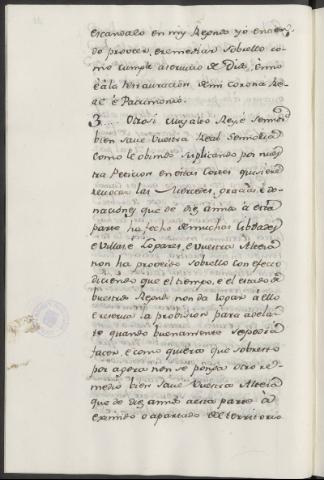 escandalo en my Reyno yo entien
do proveer, e remediar sobrello co
mo cumple a servicio de Dios, e mio
e a la restauracion de mi corona Re
al e Patrimonio.
3... Otrosi muy alto Rey, e Senor
bien save vuestra Real Señoria
como le obimos suplicando por nues
tra Peticion en estas Cortes quisiere
revocar las Mercedes, gracias, e do
naciones que de diez años a esta
parte ha fecho de muchas Cibdades
e Villas, e Logares, e vuestra Alteza
non ha proveido sobrello con efecto
diciendo que el tiempo, e el estado de
vuestros Reynos non da logar a ello
e reserva la provision para adelan
te quando buenamente se podiere
facer, e como quiera que sobresto
por agora non se ponga otro re
medio bien save vuestra Alteza
que de diez años a esta parte ha
eximido o apartado del territorio